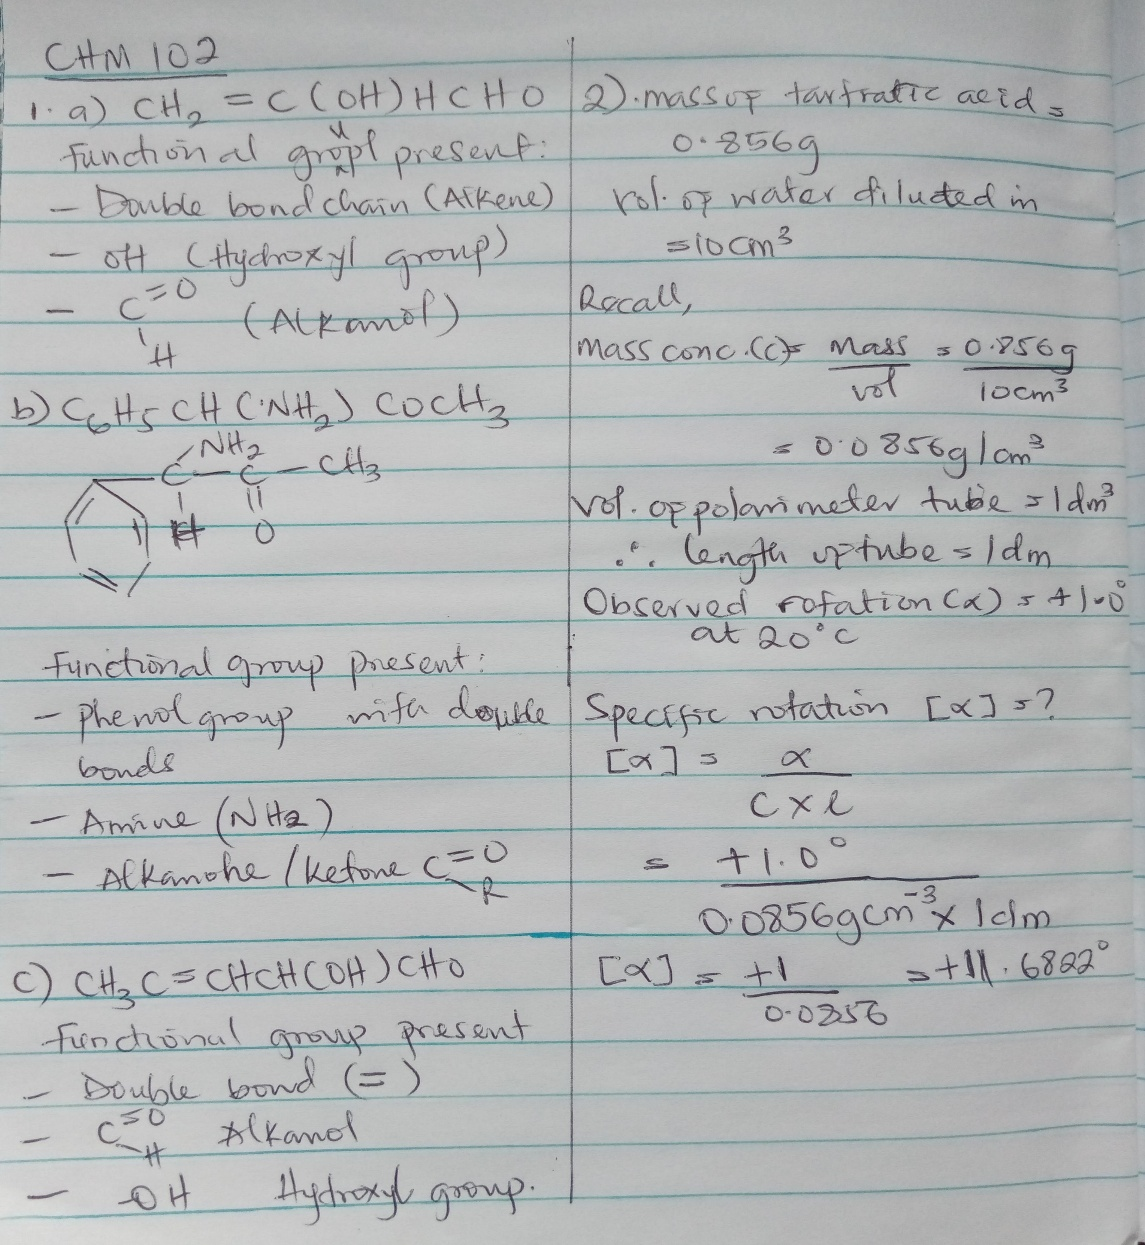 CHM 102
1. a) CH₂ = C(OH)HCHO
functional group present:
- Double bond chain (Alkene)
- OH (Hydroxyl group)
- C=O (Alkanol)
H
b) C₆H₅CH(NH₂)COCH₃
NH₂
C - C - CH₃
H O
functional group present:
- phenol group with double
bonds
- Amine (NH₂)
- Alkanone / ketone C=O
R
c) CH₃C=CHCH(OH)CHO
functional group present
- Double bond (=)
- C=O Alkanol
H
- -OH Hydroxyl group.
2). mass of tartratic acid =
0.856g
vol. of water diluted in
=10cm³
Recall,
mass conc.(c)= mass = 0.856g
vol 10cm³
= 0.0856g/cm³
Vol. of polarimeter tube = 1dm³
∴ length of tube = 1dm
Observed rotation (α) = +1.0°
at 20°C
Specific rotation [α] = ?
[α] = α
c x l
= +1.0°
0.0856gcm⁻³ x 1dm
[α] = +1 = +11.6822°
0.0856